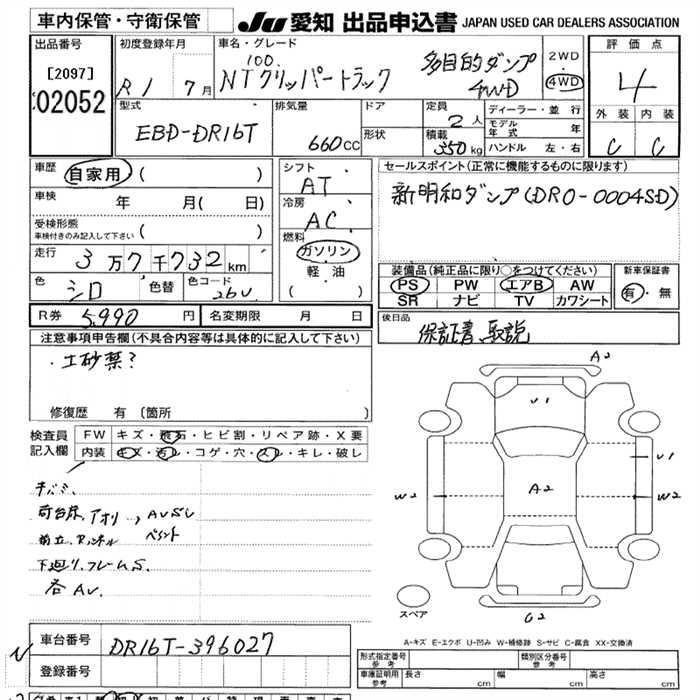 車内保管・守衛保管
JU 愛知 出品申込書 JAPAN USED CAR DEALERS ASSOCIATION
出品番号
[2097]
02052
初度登録年月
R1 7月
車名・グレード
100.
NTクリッパートラック 多目的ダンプ 4WD
2WD
4WD
評価点
4
外装 内装
C C
型式
EBD-DR16T
排気量
660cc
ドア
形状
定員
2人
積載
350kg
ディーラー・並行
モデル年式 年
ハンドル 左・右
車歴 自家用 ( )
車検 年 月( 日)
受検形態
車検付きのみ記入して下さい ( )
走行 3万7千732km
色 シロ 色替 色コード 26U
シフト
AT
冷房
AC
燃料
ガソリン
軽油
( )
セールスポイント(正常に機能するものに限ります)
新明和ダンプ(DR0-0004SD)
装備品(純正品に限り○をつけてください)
PS PW エアB AW
SR ナビ TV カワシート
新車保証書
有・無
R券 5,990円 名変期限 月 日
後日品
保証書 取説
注意事項申告欄(不具合内容等は具体的に記入して下さい)
・土砂禁?
修復歴 有 (箇所 )
検査員記入欄
FW キズ・飛石・ヒビ割・リペア跡・X要
内装 キズ・汚レ・コゲ・穴・スレ・キレ・破レ
キバミ
荷台床,アオリ
下廻り.フレームS.
各AU.
A2
U1
U1
W2
A2
W2
C2
スペア
A-キズ E-エクボ U-凹み W-補修跡 S-サビ C-腐食 XX-交換済
車台番号 DR16T-396027
登録番号
形式指定番号 参考
類別区分番号 参考
車庫証明用 参考 長さ cm 幅 cm 高さ cm